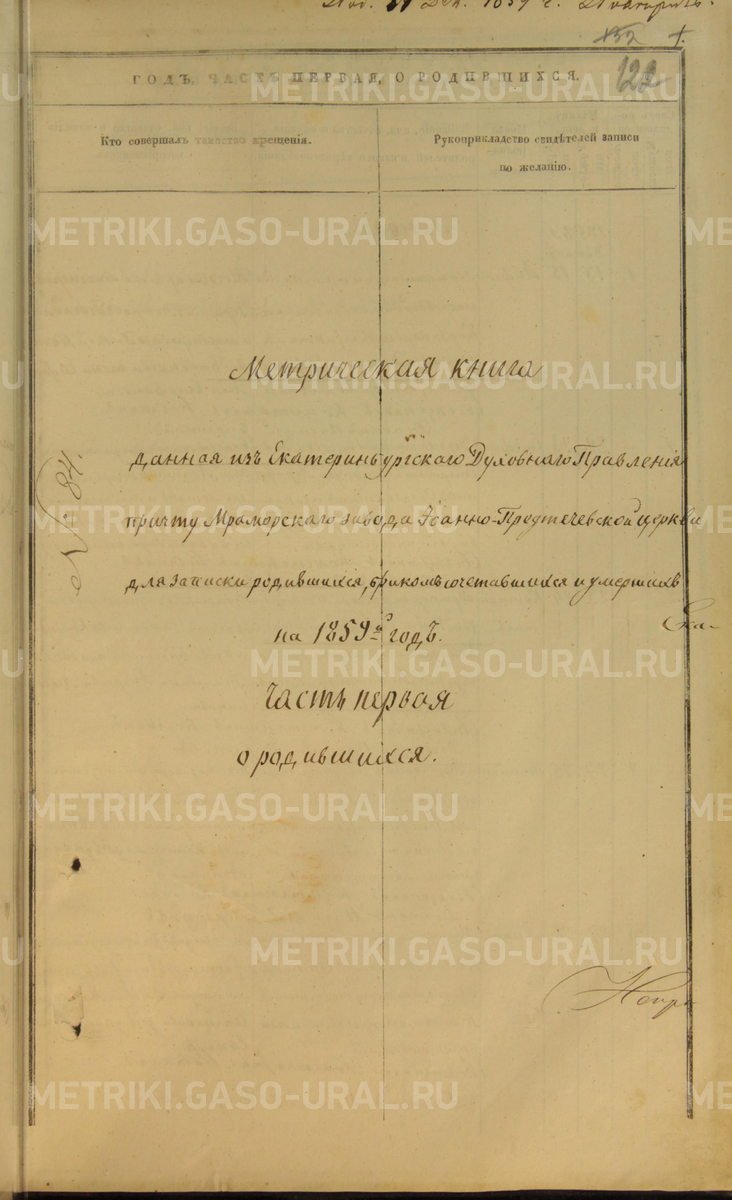 Дек. 1859 г.
132 1.
122
ГОДЪ, ЧАСТЬ ПЕРВАЯ, О РОДИВШИХСЯ.
Кто совершалъ таинство крещенія.
Рукоприкладство свидѣтелей записи
по желанію.
Метрическая книга
№ 84.
данная изъ Екатеринбургскаго Духовнаго Правленія
причту Мраморскаго завода Іоанно-Предтечевской церкви
для записки родившихся, бракомъ сочетавшихся и умершихъ
Ека-
на 1859й годъ.
Часть первая
о родившихся.
METRIKI.GASO-URAL.RU